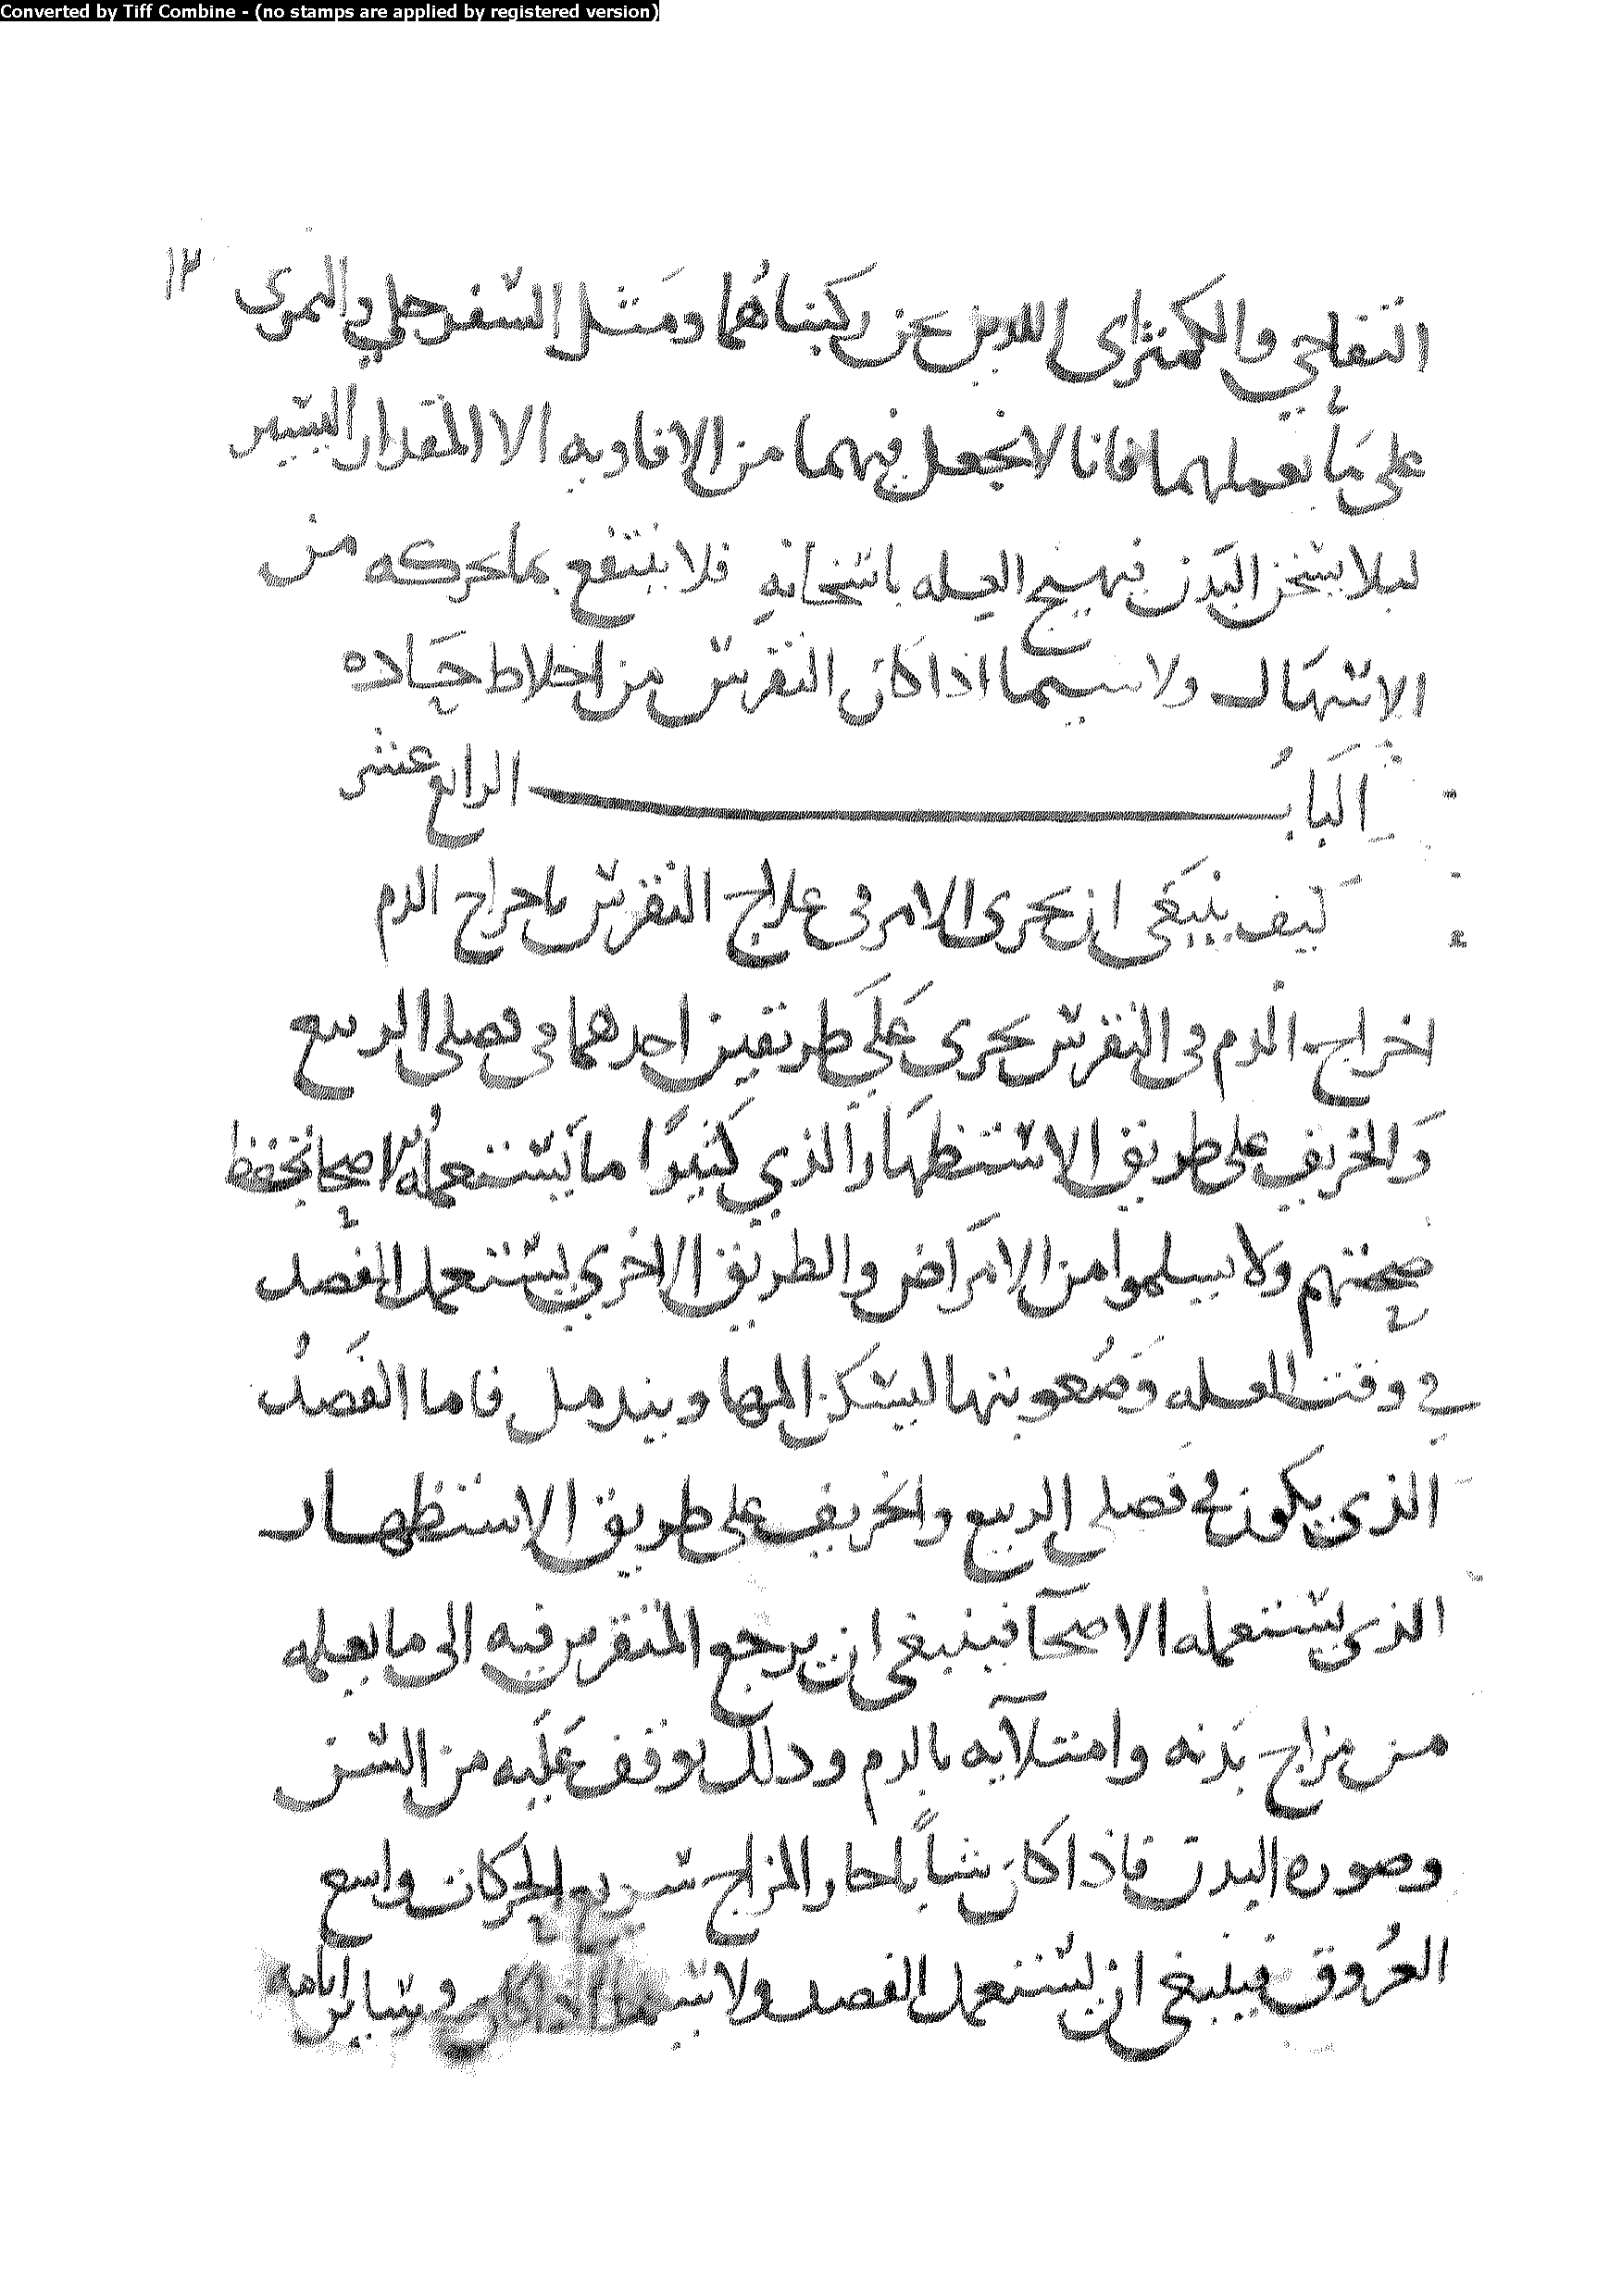 Converted by Tiff Combine - (no stamps are applied by registered version)
١٣
التفاحي والكمثراى اللذين نحن ركبناهُما ومَثل السفرجلي والتمرى
على مَا نعملهما فانا لا نجعل فيهما من الافاويه الا المقدار اليسير
ليلا يسخن البَدن فيهيج العله باسخانهِ فلا ينتفع بما يحركه من
الاسهَال ولا سيما اذا كان النقرس من اخلاط حَاده
البابُ الرابع عشر
كيف ينبَغي ان يجرى الامر في علاج النقرس باخراج الدم
اخراج الدم في النقرس يجرى عَلَى طريقين احدهما في فصلى الربيع
وَالخريف على طريق الاستظهَار الذي كَثيرًا ما يَستعملهُ الاصحا لتحفظ
صحتهم ولا يسلموا من الامَراض والطريق الاخري يستعمل الفصد
في وقت العله وَصُعوبتها ليسكن المها ويندمل فاما الفَصدُ
الذي يكون في فصلى الربيع والخريف على طريق الاستظهار
الذى يستعمله الاصحآ فينبغى ان يرجع المنقرس فيه الى ما يعلمه
من مزاج بَدنه وامتلآيه بالدم وذلك يوقف عَليه من السن
وصوره البدن فاذا كان شاباً حار المزاج سريع الحركات واسع
العُروق فينبغى ان يستعمل الفصد ولا سيما اذا كان في ساير ايامه